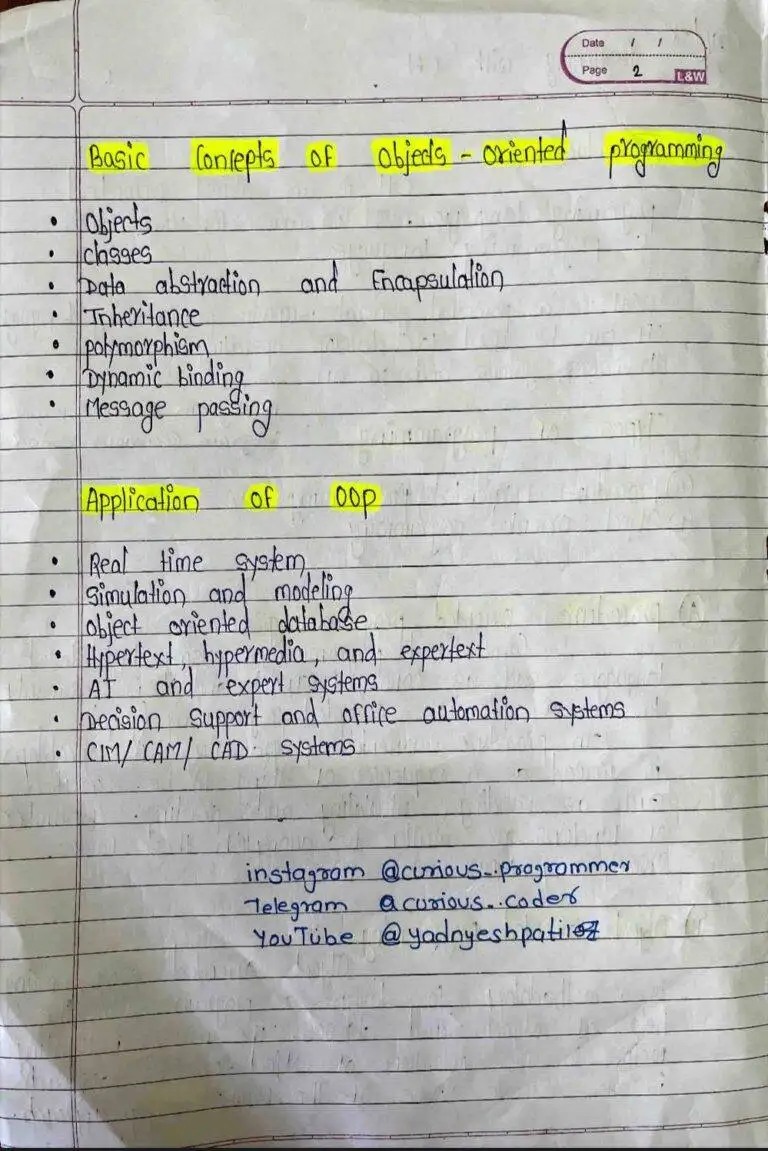 Date / /
Page 2
L&W
Basic Concepts of Objects - oriented programming
• Objects
• classes
• Data abstraction and Encapsulation
• Inheritance
• polymorphism
• Dynamic binding
• Message passing
Application of OOP
• Real time system
• Simulation and modeling
• object oriented database
• Hypertext, hypermedia, and expertext
• AI and expert systems
• Decision Support and office automation systems
• CIM/ CAM/ CAD systems
instagram @curious_.programmer
Telegram @curious_.coder
YouTube